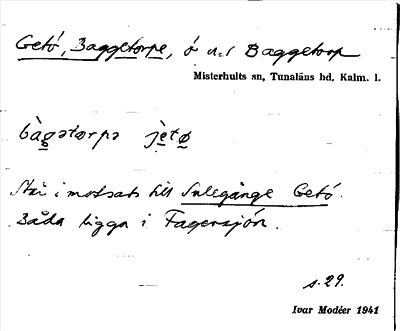 Getö, Baggetorpe, ö u.f Baggetorp
Misterhults sn, Tunaläns hd, Kalm. l.
bàgətorpə jètø
Står i motsats till Sulegånge Getö.
Båda ligga i Fagersjön.
s. 29.
Ivar Modéer 1941